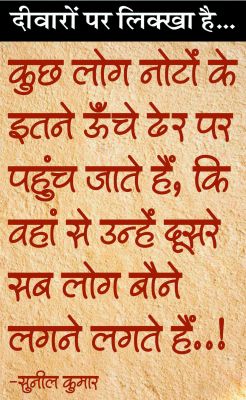 दीवारों पर लिक्खा है...
कुछ लोग नोटों के
इतने ऊँचे ढेर पर
पहुंच जाते हैं, कि
वहां से उन्हें दूसरे
सब लोग बौने
लगने लगते हैं..!
-सुनील कुमार